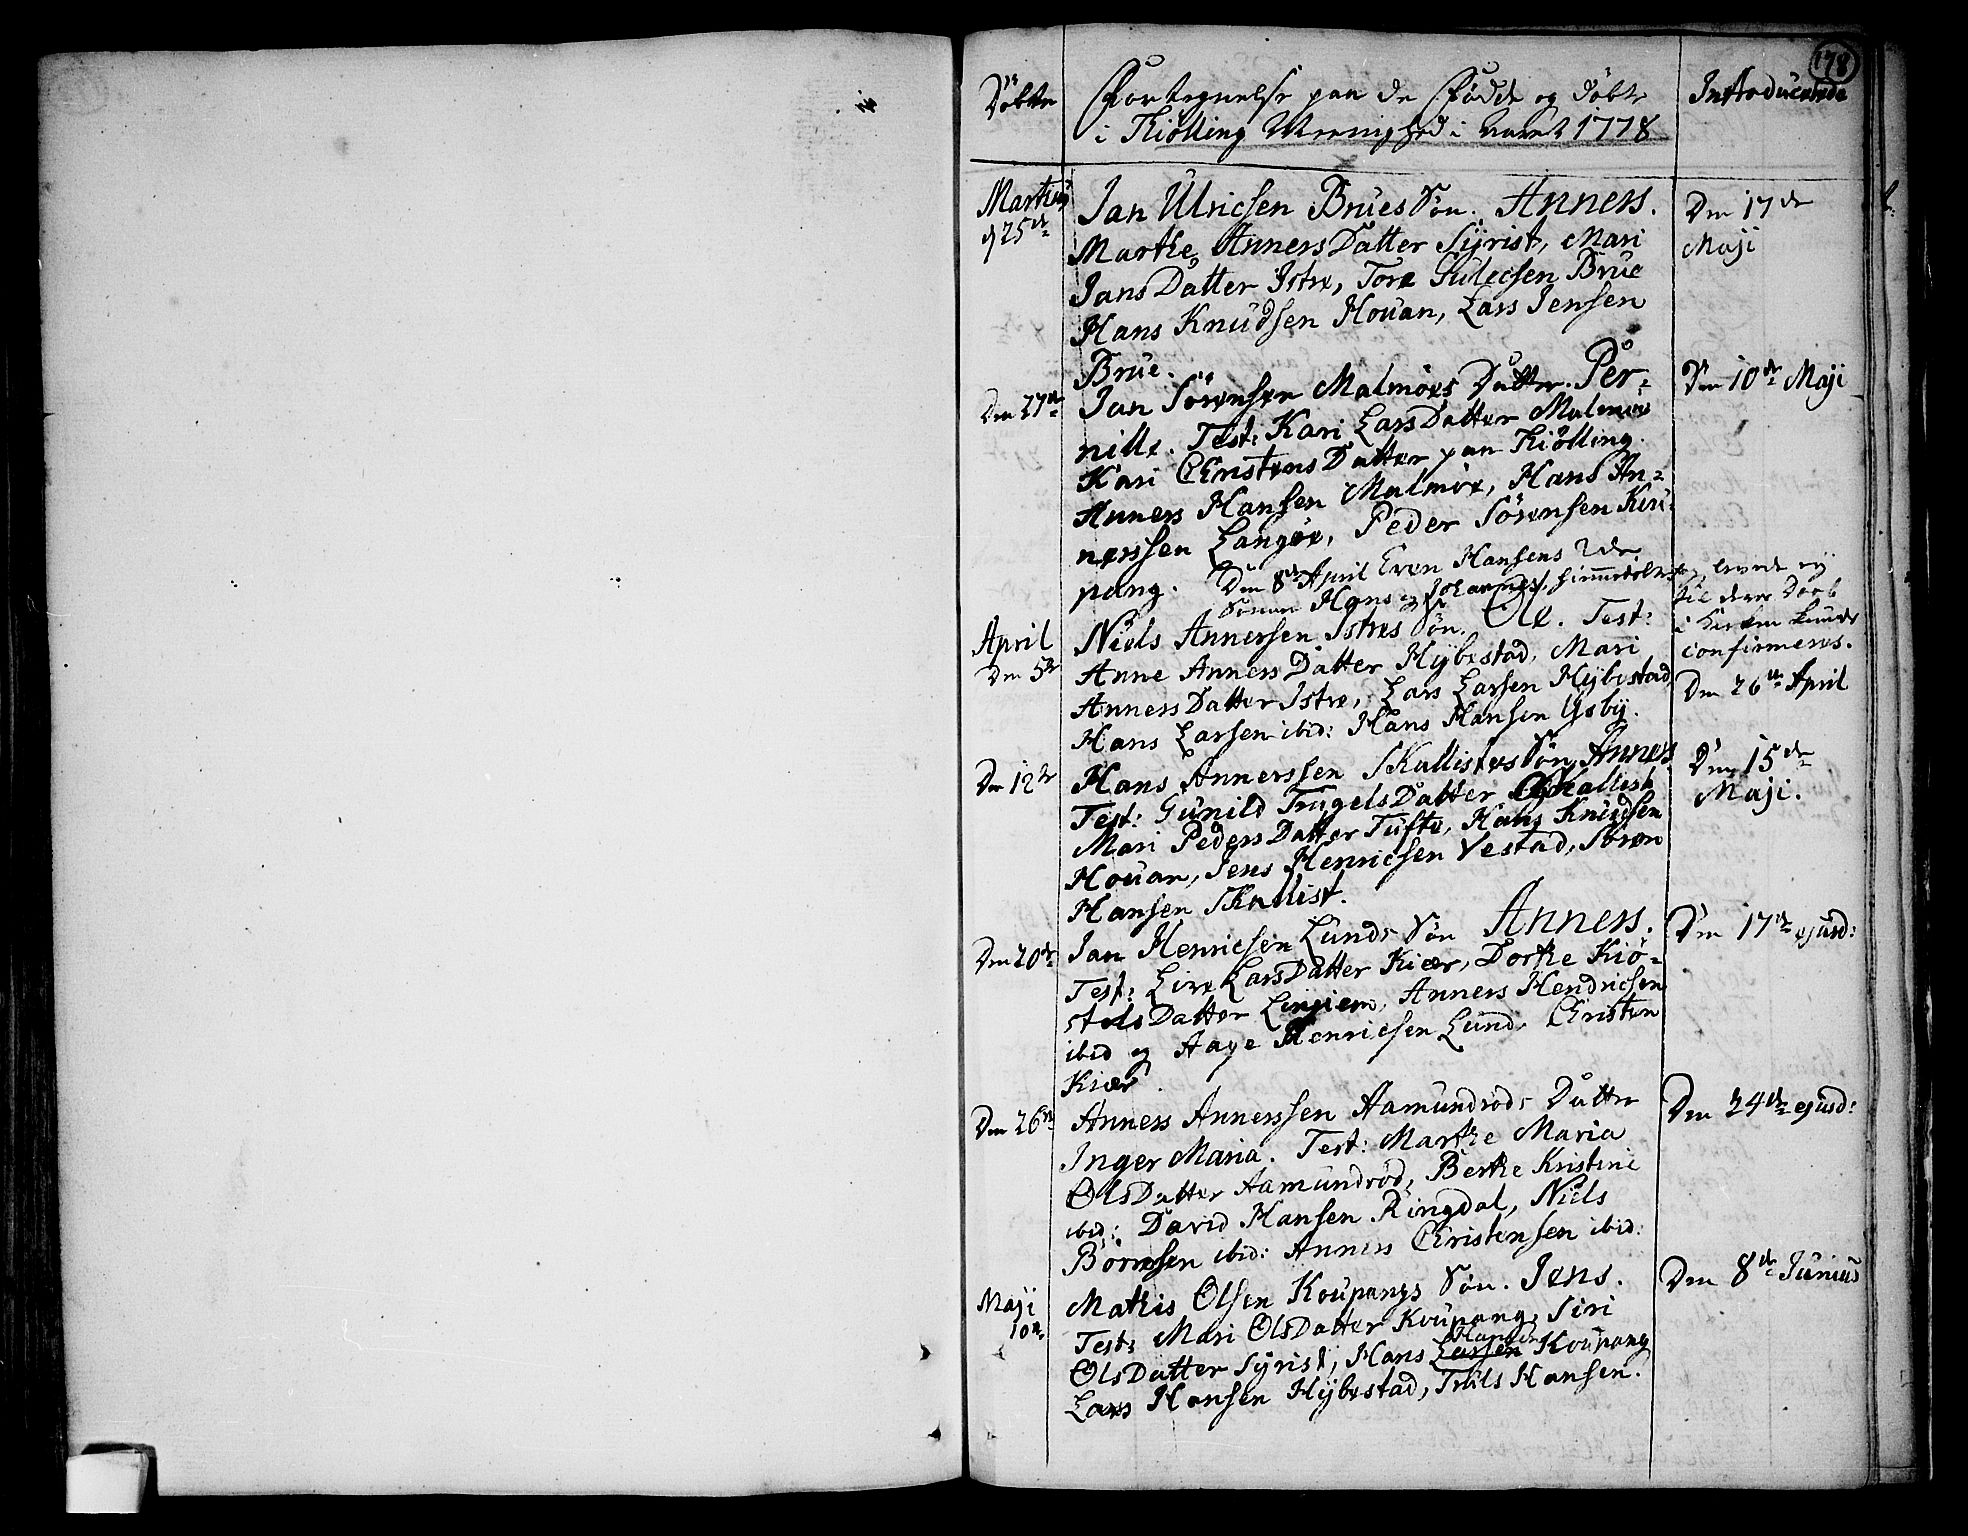 178
Döbte
Fortegnelse paa de Födde og döbte
i Kiölling Meenighed i Aaret 1778
Introducerede
Martij
d 25de
Jan Ulricsen Brues Sön. Anners.
Marthe AnnersDatter Syrist, Mari
JansDatter Istre, Tore Gulecsen Brue
Hans Knudsen Houan, Lars Jensen
Brue.
Den 17de
Maji
Den 27de
Jan Sörensen Malmöes Datter. Per-
nille. Test: Kari LarsDatter Malmöe
Kari ChristensDatter paa Kiölling.
Anners Hansen Malmöe, Hans An-
nerssen Langöe, Peder Sörensen Kau-
pang.
Den 10de Maji
Den 8de April Even Hansens 2de
Sönner Hans og Johannes, hiemmedöbte, levede ej
til deres Daab
i Kirken kunde
confirmeres.
April
Den 5te
Niels Annersen Istres Sön. Ole. Test:
Anne AnnersDatter Hybestad, Mari
AnnersDatter Istre, Lars Larsen Hybestad
Hans Larsen ibid: Hans Hansen Gsby.
Den 26de April
Den 12te
Hans Annerssen Skallists Sön Anners
Test: Gunild TrugelsDatter Skallist
Mari PedersDatter Tufte, Hans Knudsen
Houan, Jens Henricsen Vestad, Sören
Hansen Skallist.
Den 15de
Maji.
Den 20de
Jan Henricsen Lunds Sön Anners.
Test: Live LarsDatter Kiær, Dorthe Kiö-
stelsDatter Lingiem, Anners Hendricsen
ibid og Aage Henricsen Lund. Christen
Kiær.
Den 17de ejusd:
Den 26de
Anners Annerssen Aamundröds Datter
Inger Maria. Test: Marthe Maria
OlsDatter Aamundröd, Berthe Kristine
ibid: David Hansen Ringdal, Niels
Börresen ibid: Anners Christensen ibid:
Den 24de ejusd:
Maji
10de
Mathis Olsen Koupangs Sön. Jens.
Test: Mari OlsDatter Koupang, Siri
OlsDatter Syrist, Hans Larsen Hansen Koupang
Lars Hansen Hybestad, Truls Hansen.
Den 8de Junius